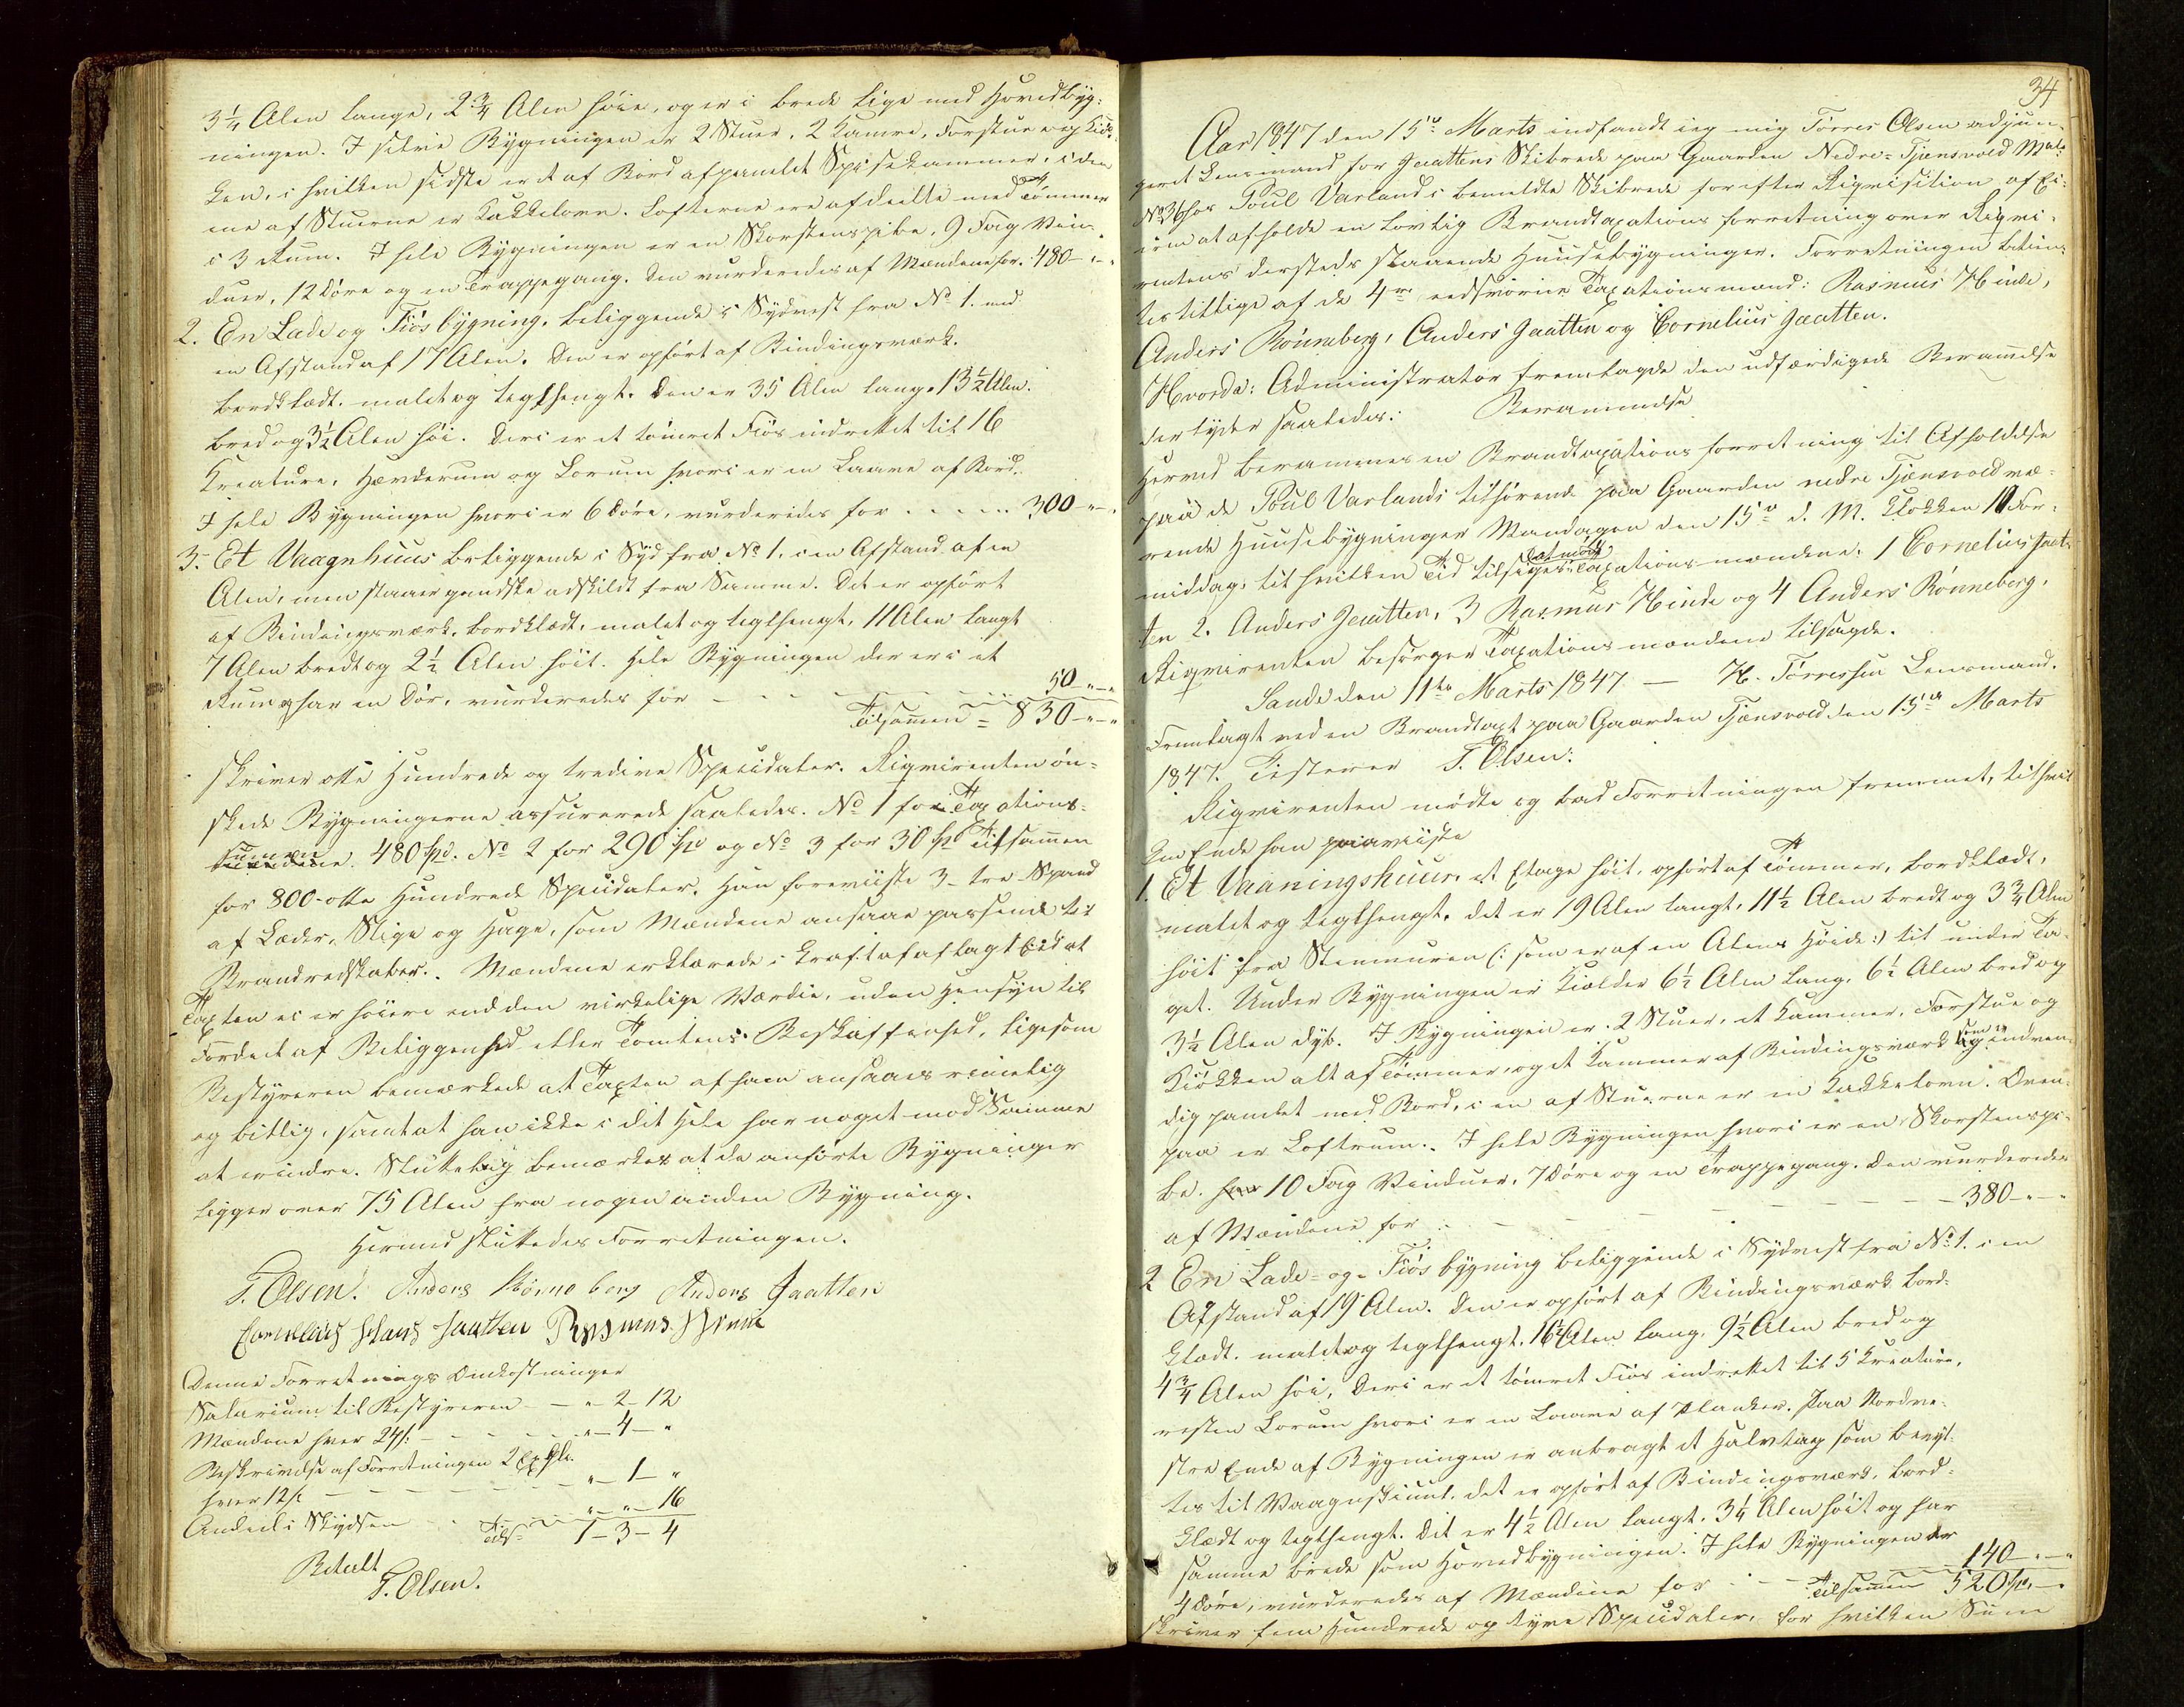 3 1/4 Alen lange, 2 3/4 Alen høie, og er i Brede lige med Hovedbyg-
ningen. I selve Bygningen er 2 Stuer, 2 Kamre, Forstue og Kiøk-
ken, i hvilken sidste er et af Bord afpanelet Spisekammer, i den
ene af Stuerne er Kakkelovn. Lofterne ere afdeelte med Tømmer
i 3 Rum. I hele Bygningen er en Skorstenspibe, 9 Fag Vin-
duer, 12 Døre og en Trappegang. Den vurderedes af Mændene for. 480 - " - "
2. En Lade og Fiøsbygning, beliggende i Sydvest fra No 1. med
en Afstand af 17 Alen. Den er opført af Bindingsværk,
bordklædt, malet og teglhængt. Den er 35 Alen lang, 13 1/2 Alen
bred og 3 1/2 Alen høi. Deri er et tømret Fiøs indrettet til 16
Kreature, Hævderum og Lorum hvori er en Laave af Bord.
I hele Bygningen hvori er 6 Døre, vurderedes for . . . . . 300 - " - "
3. Et Vaagnhuus beliggende i Syd fra No 1, i en Afstand af en
Alen, men staaer gandske adskildt fra Samme. Det er opført
af Bindingsværk, bordklædt, malet og teglhængt, 11 Alen langt
7 Alen bredt og 2 1/2 Alen høit. Hele Bygningen der er i et
Rum og har en Dør, vurderedes for - - - - 50 - " - "
Tilsammen = 830 - " - "
skriver otte Hundrede og tredive Speciedaler. Reqvirenten øn-
skede Bygningerne assurerede saaledes. No 1 for Taxations-
Summen 480 Spd. No 2 for 290 Spd og No 3 for 30 Spd Tilsammen
for 800 - otte Hundrede Speciedaler. Han foreviiste 3 - tre Spand
af Læder, Stige og Hage, som Mændene ansaae passende til
Brandredskaber. Mændene erklærede i Kraft af aflagt Eed at
Taxten ei er høiere end den virkelige Værdie, uden Hensyn til
Fordeel af Beliggenhed eller Tomtens Beskaffenhed, ligesom
Bestyreren bemærkede at Taxten af ham ansaaes rimelig
og billig, samt at han ikke i det Hele har noget mod Samme
at erindre. Sluttelig bemærkes at de anførte Bygninger
ligger over 75 Alen fra nogen anden Bygning.
Hermed sluttedes Forretningen.
T. Olsen. Anders Rønneberg Anders Jaatten
Cornelius Jaatten Rasmus Hinde
Denne Forretnings Omkostninger
Salarium til Bestyreren - - " - 2 - 12
Mændene hver 24 s. - - - - " - 4 - "
Beskrivelse af Forretningen 2 Expl.
hver 12 s. - - - - " - 1 - "
Andeel i Skydsen - - " - " - 16
Tils. 1 - 3 - 4
Betalt
T. Olsen.
34
Aar 1847 den 15de Marts indfandt ieg mig Tørres Olsen adjun-
geret Lensmand for Jaattens Skibrede paa Gaarden Nedre-Tjensvold Mat:
No 36 hos Poul Varland i bemeldte Skibrede for efter Reqvisition af Ei-
eren at afholde en lovlig Brandtaxations forretning over Reqvi-
rentens dersteds staaende Huusebygninger. Forretningen betien-
tes tillige af de 4re eedsvorne Taxationsmænd: Rasmus Hinde,
Anders Rønneberg, Anders Jaatten og Cornelius Jaatten.
Hvorda: Administrator fremlagde den udfærdigede Berammelse
der lyder saaledes: Berammelse
Herved berammes en Brandtaxations forretning til Afholdelse
paa de Poul Varlands tilhørende paa Gaarden nedre Tjensvold væ-
rende Huusebygninger Mandagen den 15de d. M. Klokken 10 For-
middag, til hvilken Tid tilsiges at møde Taxationsmændene: 1 Cornelius Jaat-
ten 2. Anders Jaatten, 3 Rasmus Hinde og 4 Anders Rønneberg.
Reqvirenten besørger Taxationsmændene tilsagde.
Sande den 11te Marts 1847 — H. Tørressen Lensmand.
Fremlagt ved en Brandtaxt paa Gaarden Tjensvold den 15de Marts
1847. Testerer T. Olsen:
Reqvirenten mødte og bad Forretningen fremmet, til hvil-
ken Ende han paaviiste
1. Et Vaaningshuus, et Etage høit, opført af Tømmer, bordklædt,
malet og teglhængt. Det er 19 Alen langt, 11 1/2 Alen bredt og 3 3/4 Alen
høit fra Steenmuren (: som er af en Alens Høide :) til under Ta-
get. Under Bygningen er Kielder 6 1/2 Alen lang, 6 1/2 Alen bred og
3 1/2 Alen dyb. I Bygningen er 2 Stuer, et Kammer, Forstue og
Kiøkken alt af Tømmer, og et Kammer af Bindingsværk som er indven-
dig panelet med Bord, i en af Stuerne er en Kakkelovn. Oven-
paa er Loftrum. I hele Bygningen hvori er en Skorstenspi-
be. 10 Fag Vinduer, 7 Døre og en Trappegang. Den vurderedes
af Mændene for - - - - - - 380 - " - "
2 En Lade- og Fiøsbygning beliggende i Sydvest fra No 1. i en
Afstand af 19 Alen. Den er opført af Bindingsværk bord-
klædt, malet og teglhængt, 16 1/2 Alen lang, 9 1/2 Alen bred og
4 3/4 Alen høi, Deri er et tømret Fiøs indrettet til 5 Kreature,
resten Lorum hvori er en Laave af Planker. Paa Nordve-
stre Ende af Bygningen er anbragt et Halvtag som benyt-
tes til Vaagnskiuul. Det er opført af Bindingsværk, bord-
klædt og teglhængt. Det er 4 1/2 Alen langt, 3 1/4 Alen høit og har
samme Brede som Hovedbygningen. I hele Bygningen er
4 Døre, vurderedes af Mændene for - - 140 - " - "
Tilsammen 520 Spd. "
skriver fem Hundrede og tyve Speciedaler, for hvilken Sum